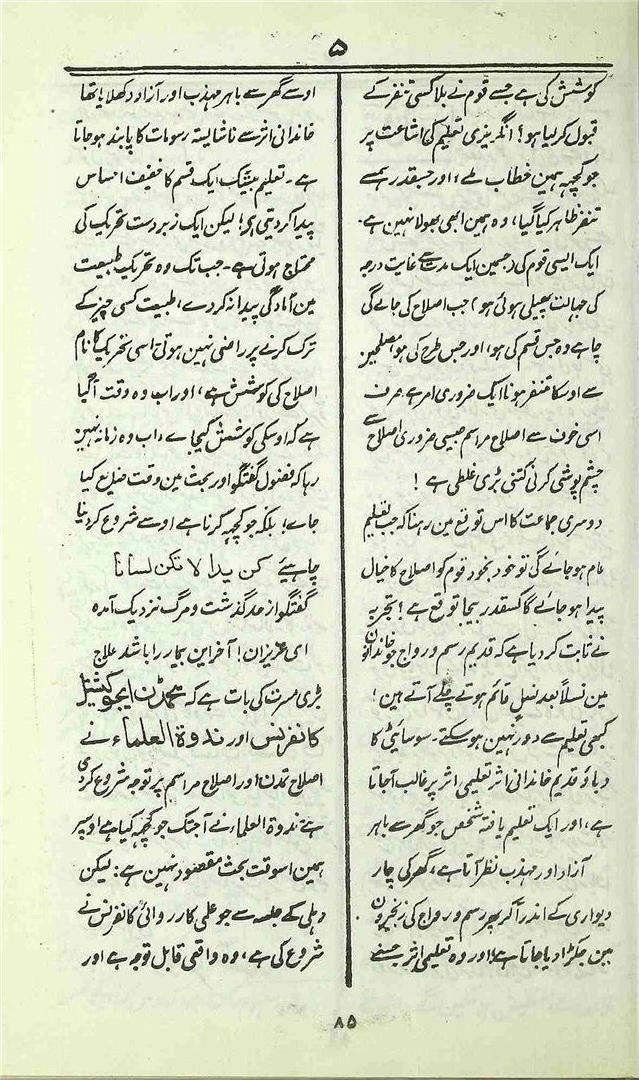 ۵
کوشش کی ہے جسے قوم نے بلا کسی تنفر کے
قبول کر لیا ہو؟ انگریزی تعلیم کی اشاعت پر
جو کچھ ہمین خطاب ملے، اور جسقدر ہمسے
تنفر ظاہر کیا گیا، وہ ہمین ابھی بھولا نہین ہے۔
ایک ایسی قوم کی (جسمین ایک مدت سے غایت درجہ
کی جہالت پھیلی ہوئی ہو) جب اصلاح کی جائے گی
چاہے وہ جس قسم کی ہو، اور جس طرح کی ہو مصلحین
سے اوسکا متنفر ہونا ایک ضروری امر ہے صرف
اسی خوف سے اصلاح مراسم جیسی ضروری اصلاح سے
چشم پوشی کرنی کتنی بڑی غلطی ہے!
دوسری جماعت کا اس توقع مین رہنا کہ جب تعلیم
عام ہو جائے گی تو خود بخود قوم کو اصلاح کا خیال
پیدا ہو جائے گا کسقدر بیجا توقع ہے! تجربہ
نے ثابت کر دیا ہے کہ قدیم رسم و رواج جو خاندانون
مین نسلاً بعد نسلٍ قائم ہوتے چلے آتے ہین؛
کبھی تعلیم سے دور نہین ہو سکتے، سوسائیٹی کا
دباؤ قدیم خاندانی اثر تعلیمی اثر پر غالب آ جاتا
ہے، اور ایک تعلیم یافتہ شخص جو گھر سے باہر
آزاد اور مہذب نظر آتا ہے، گھر کی چار
دیواری کے اندر آ کر پھر رسم و رواج کی زنجیرون
مین جکڑا دیا جاتا ہے؛ اور وہ تعلیمی اثر جسنے
اوسے گھر سے باہر مہذب اور آزاد دکھلایا تھا
خاندانی اثر سے ناشایستہ رسومات کا پابند ہو جاتا
ہے۔ تعلیم بیشک ایک قسم کا خفیف احساس
پیدا کر دیتی ہی؛ لیکن ایک زبردست تحریک کی
محتاج ہوتی ہے۔ جب تک وہ تحریک طبیعت
مین آمادگی پیدا نہ کر دے، طبیعت کسی چیز کے
ترک کرنے پر راضی نہین ہوتی؛ اسی تحریک کا نام
اصلاح کی کوشش ہے، اور اب وہ وقت آ گیا
ہے کہ اوسکی کوشش کیجائے، اب وہ زمانہ نہین
رہا کہ فضول گفتگو اور بحث مین وقت ضایع کیا
جائے؛ بلکہ جو کچھ کرنا ہے اوسے شروع کر دینا
چاہیئے کن یدا لا تکن لسانا
گفتگو از حد گذشت و مرگ نزدیک آمدہ
ای عزیزان! آخر این بیمار را باشد علاج
بڑی مسرت کی بات ہے کہ محمڈن ایجوکیشنل
کانفرنس اور ندوۃ العلماء نے
اصلاح تمدن اور اصلاح مراسم پر توجہ شروع کر دی
ہے ندوۃ العلماء نے آجتک جو کچھ کیا ہے اوسپر
ہمین اسوقت بحث مقصود نہین ہے؛ لیکن
دہلی کے جلسہ سے جو عملی کارروائی کانفرنس نے
شروع کی ہے، وہ واقعی قابل توجہ ہے اور
۸۵